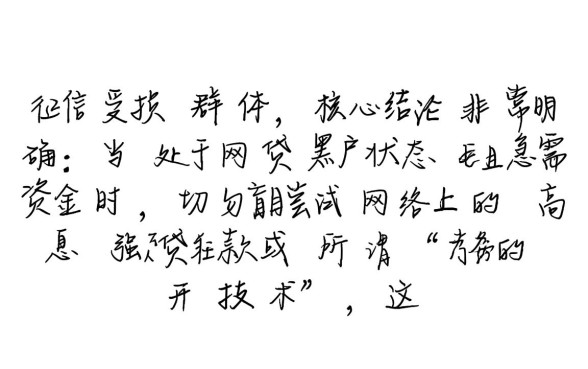 征信受损 群体, 核心结论 非常明
确: 当 处于网贷黑户状态 且急需
资金时, 切勿盲目尝试 网络上的 高
息 强贷款或 所谓 “ 的
开 技术”, 这